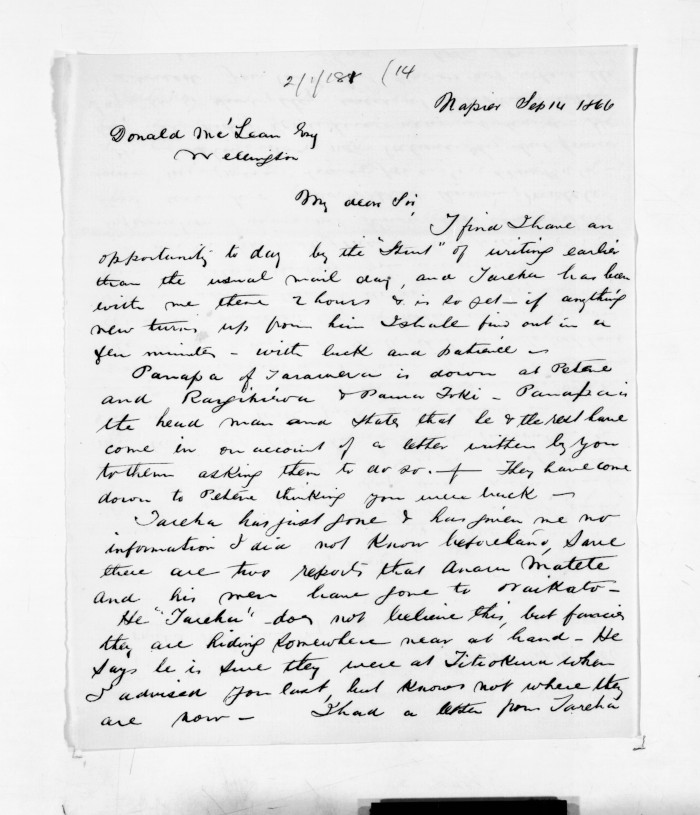 2/1/181 (14
Napier Sep 14 1866
Donald McLean Esq
Wellington
My dear Sir,
I find I have an
opportunity to day by the "Sturt" of writing earlier
than the usual mail day, and Tareha has been
with me these 2 hours & is so yet - if anything
new turns up from him I shall find out in a
few minutes - with luck and patience -
Panapa of Tarawera is down at Petane
and & Paora Toki - Panapa is
the head man and states that he & the rest have
come in on account of a letter written by you
to them asking them to do so. - They have come
down to Petane thinking you were back -
Tareha has just gone & has given me no
information I did not know beforehand, save
there are two reports that Anaru Matete
and his men have gone to Waikato -
He "Tareha" does not believe this, but fancies
they are hiding somewhere near at hand - He
says he is sure they were at Titiokura when
I advised you last, but knows not where they
are now - I had a letter from Tareha